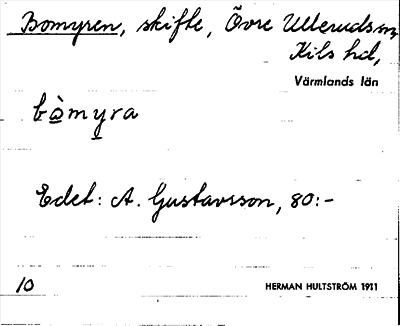 Bomyren, skifte, Övre Ullerudsm,
Kils hd,
Värmlands län
bòmyra
Edet: A. Gustavsson, 80:-
10
HERMAN HULTSTRÖM 1911